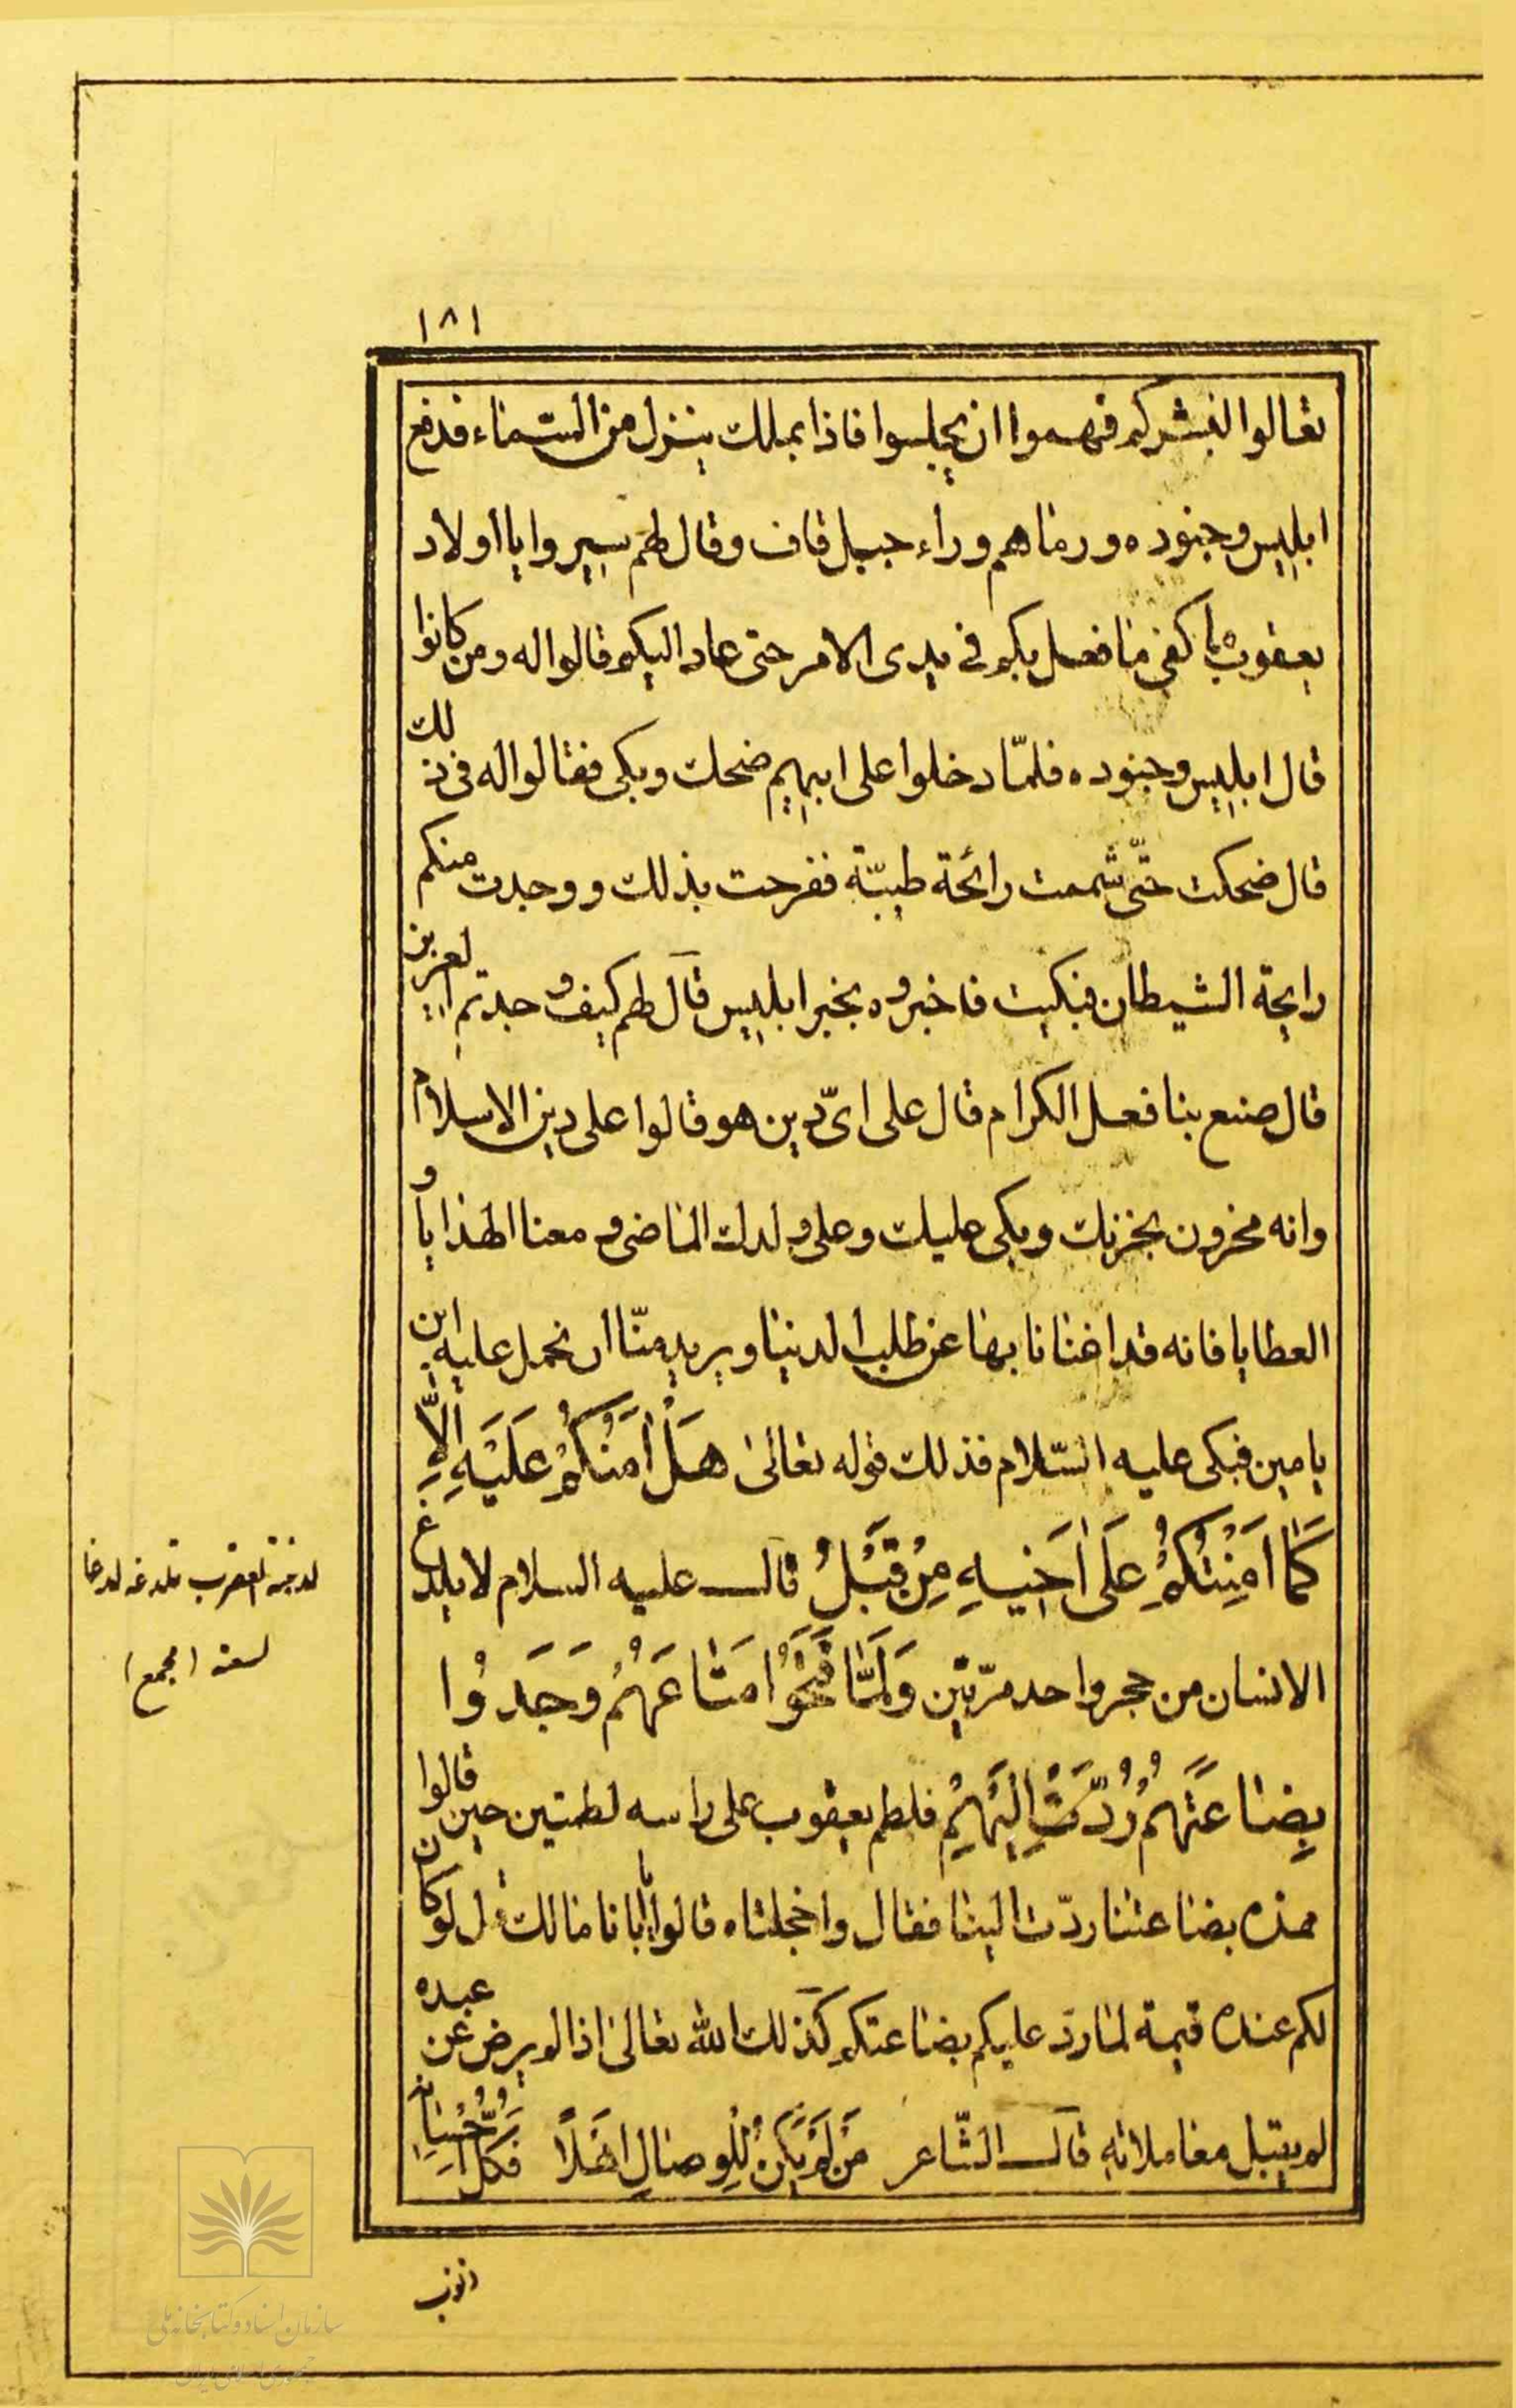 ١٨١
تعالوا لنبشركم فهموا ان يجلسوا فاذا بملك ينزل من السّماء فدفع
ابليس وجنوده ورماهم وراء جبل قاف وقال لهم سيروا يا اولاد
يعقوب ما كفى ما فعل بكم فى بدى الامر حتى عاد اليكم قالوا له ومن كانوا
قال ابليس وجنوده فلمّا دخلوا على ابيهم ضحك وبكى فقالوا له فى ذلك
قال ضحكت حتّى شممت رائحة طيبّة ففرحت بذلك ووجدت منكم
رايحة الشيطان فبكيت فاخبروه بخبر ابليس قال لهم كيف وجدتم العزيز
قال صنع بنا فعل الكرام قال على اىّ دين هو قالوا على دين الاسلام
وانه محزون بحزنك وبكى عليك وعلى ولدك الماضى ومعنا الهدايا و
العطايا فانه قد اغنانا بها عن طلب الدنيا ويريد منّا ان نحمل عليه ابن
يامين فبكى عليه السّلام فذلك قوله تعالىٰ هَلْ اٰمَنُكُمْ عَلَيْهِ اِلّاٰ
كَمٰا اَمِنْتُكُمْ عَلىٰ اَخيٖهِ مِنْ قَبْلُ قال عليه السلام لا يلدغ
الانسان من حجر واحد مرّتين وَلَمّٰا فَتَحُوا مَتٰاعَهُمْ وَجَدُوا
بِضٰاعَتَهُمْ رُدَّتْ اِلَيْهِمْ فلطم يعقوب على راسه لطمتين حين قالوا
هذه بضاعتنا ردّت الينا فقال واخجلتاه قالوا يا ابانا مالك قال لو كان
لكم عنده قيمة لما ردّ عليكم بضاعتكم كذلك الله تعالىٰ اذا لم يرض عن عبده
لم يقبل معاملاته قال الشّاعر مَنْ لَمْ يَكُنْ لِلْوِصٰالِ اَهْلاً فَكُلُّ اِحْسٰانِهِ
ذنوب
لدغته العقرب تلدغه لدغا
لسعته (مجمع)
سازمان اسناد و کتابخانه ملی
جمهوری اسلامی ایران